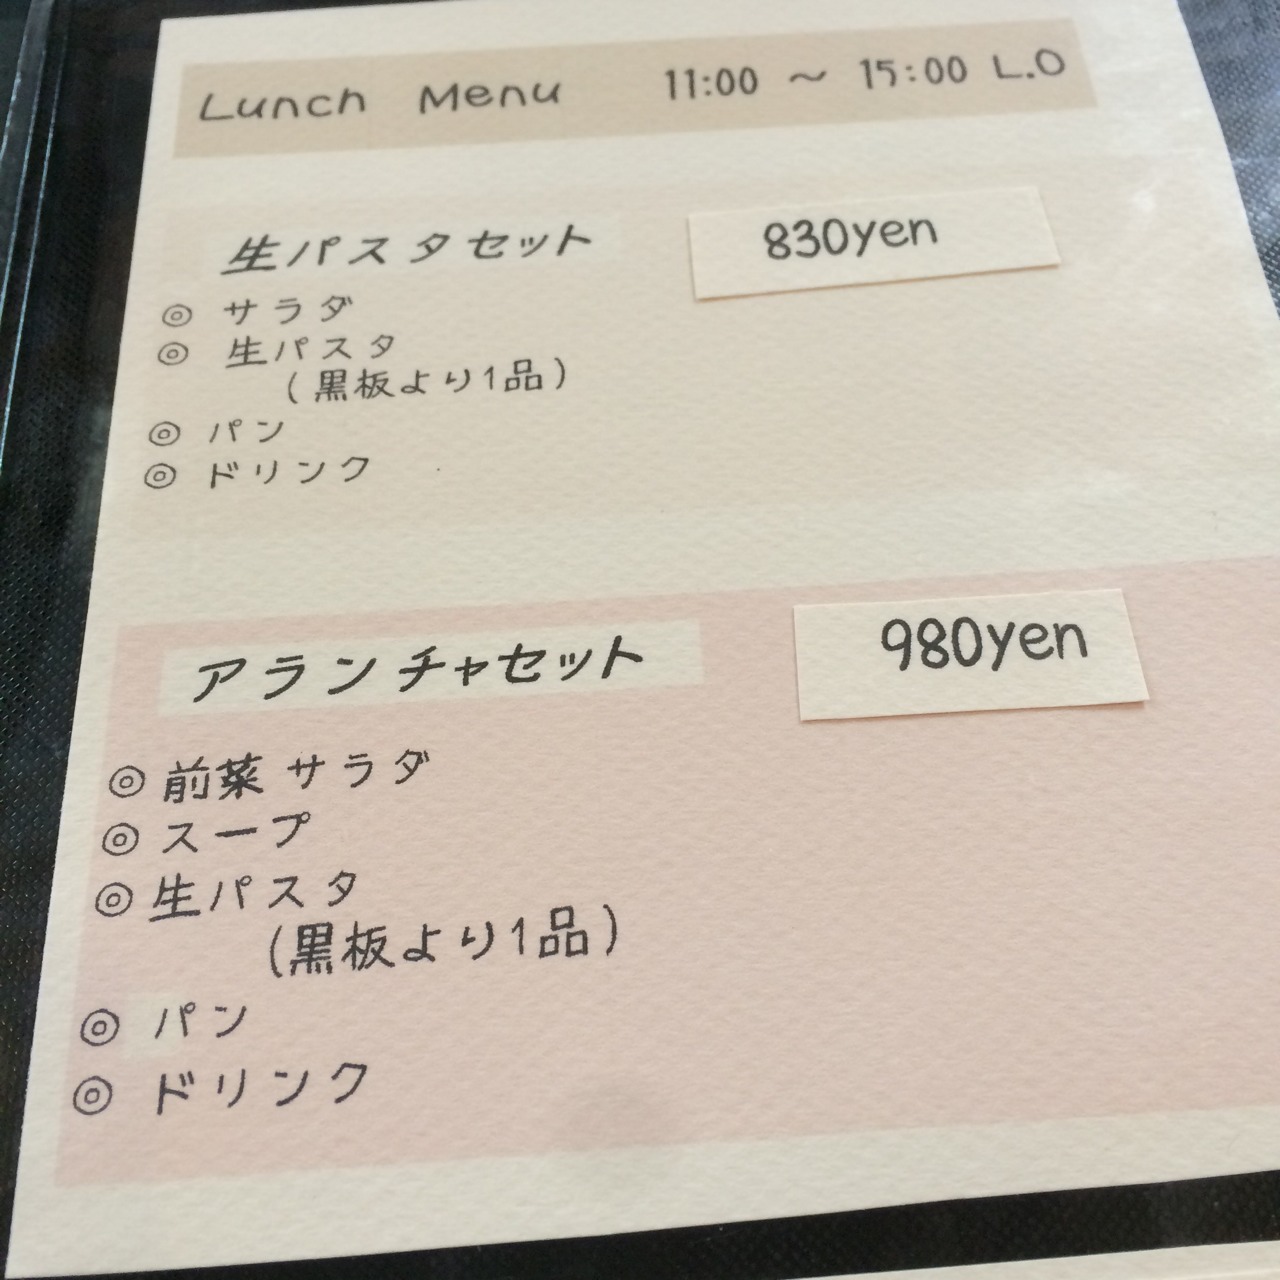 Lunch Menu 11:00 ～ 15:00 L.O
生パスタセット 830yen
◎ サラダ
◎ 生パスタ
（黒板より1品）
◎ パン
◎ ドリンク
アランチャセット 980yen
◎ 前菜サラダ
◎ スープ
◎ 生パスタ
（黒板より1品）
◎ パン
◎ ドリンク